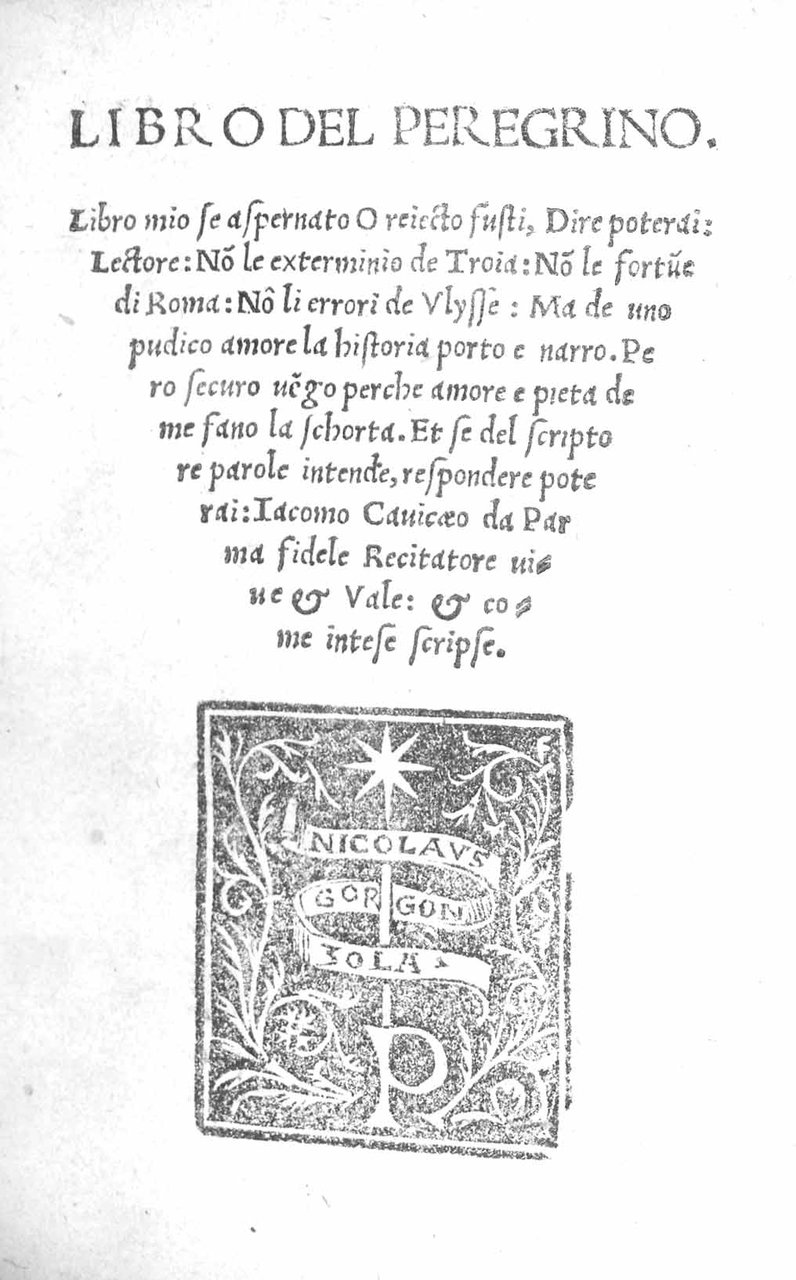 LIBRO DEL PEREGRINO.
Libro mio ſe aſpernato O reiecto fuſti, Dire poterai:
Lectore: Nõ le exterminio de Troia: Nõ le fortũe
di Roma: Nô li errori de Vlyſſe : Ma de uno
pudico amore la hiſtoria porto e narro. Pe
ro ſecuro uẽgo perche amore e pieta de
me fano la ſchorta. Et ſe del ſcripto
re parole intende, reſpondere pote
rai: Iacomo Cauicæo da Par
ma fidele Recitatore ui⸗
ue & Vale: & co⸗
me inteſe ſcripſe.
NICOLAVS
GORGON
ZOLA
P